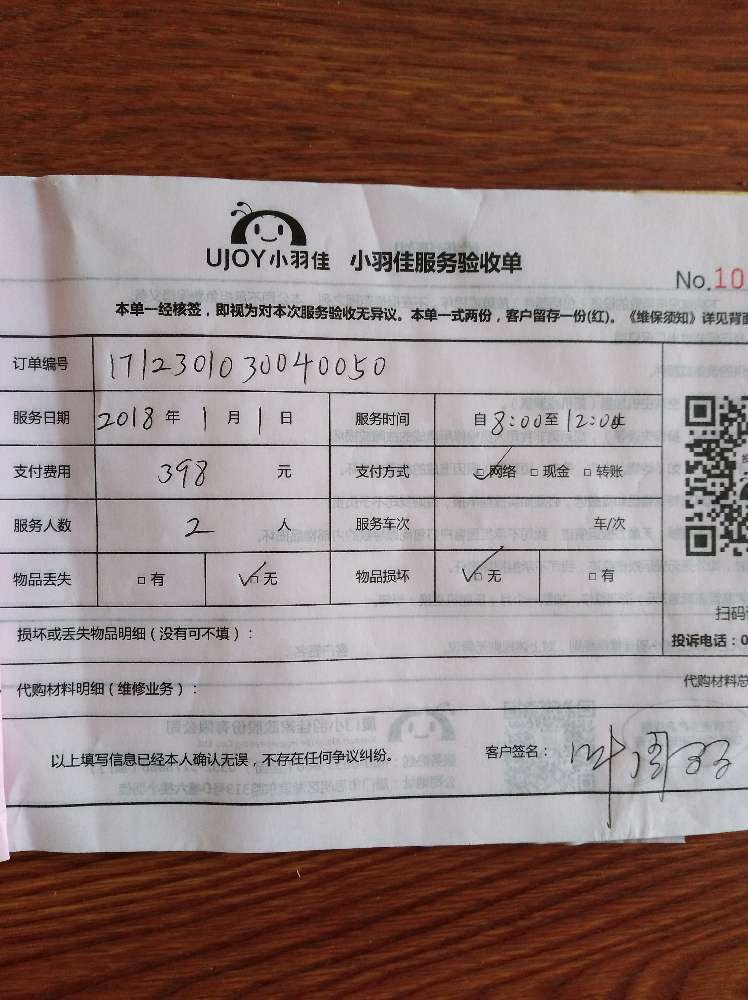 UJOY小羽佳 小羽佳服务验收单
No.10
本单一经核签，即视为对本次服务验收无异议。本单一式两份，客户留存一份(红)。《维保须知》详见背面
订单编号 1712301030040050
服务日期 2018 年 1 月 1 日 服务时间 自 8:00 至 12:00 止
支付费用 398 元 支付方式 ☑网络 □现金 □转账
服务人数 2 人 服务车次 车/次
物品丢失 □有 ☑无 物品损坏 ☑无 □有
扫码
损坏或丢失物品明细（没有可不填）：
投诉电话：0
代购材料明细（维修业务）：
代购材料总
以上填写信息已经本人确认无误，不存在任何争议纠纷。 客户签名：